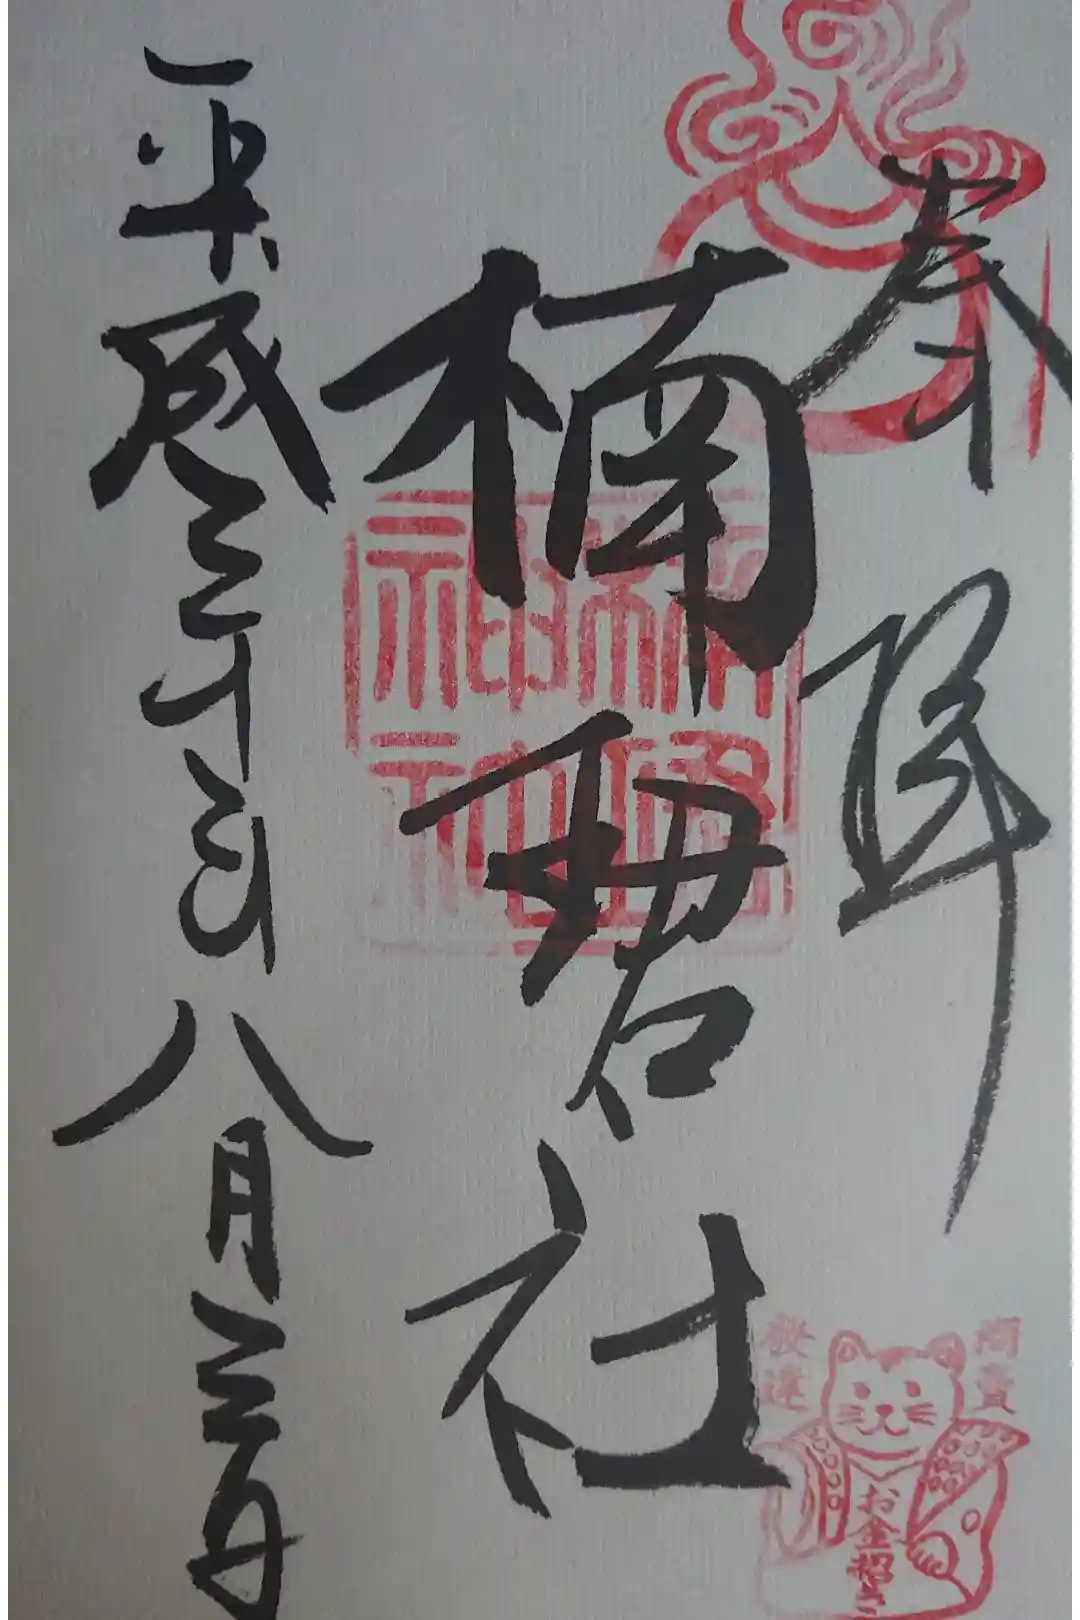 奉拝
楠珺社
平成三十年八月三日
商売
発達
お金招き